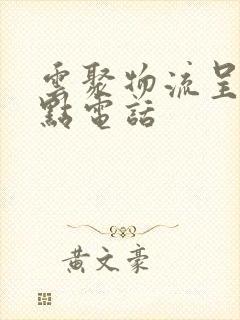 雲聚物流呈
點電話
黃文豪